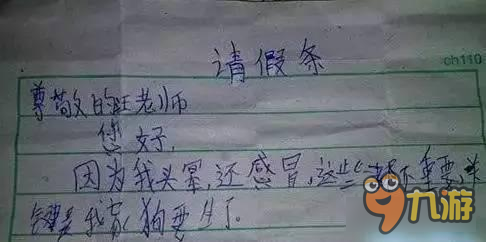 请假条
ch110
尊敬的旺老师
您好,
因为我头晕,还感冒,这些都不重要,关
键是我家狗要生了.
九游